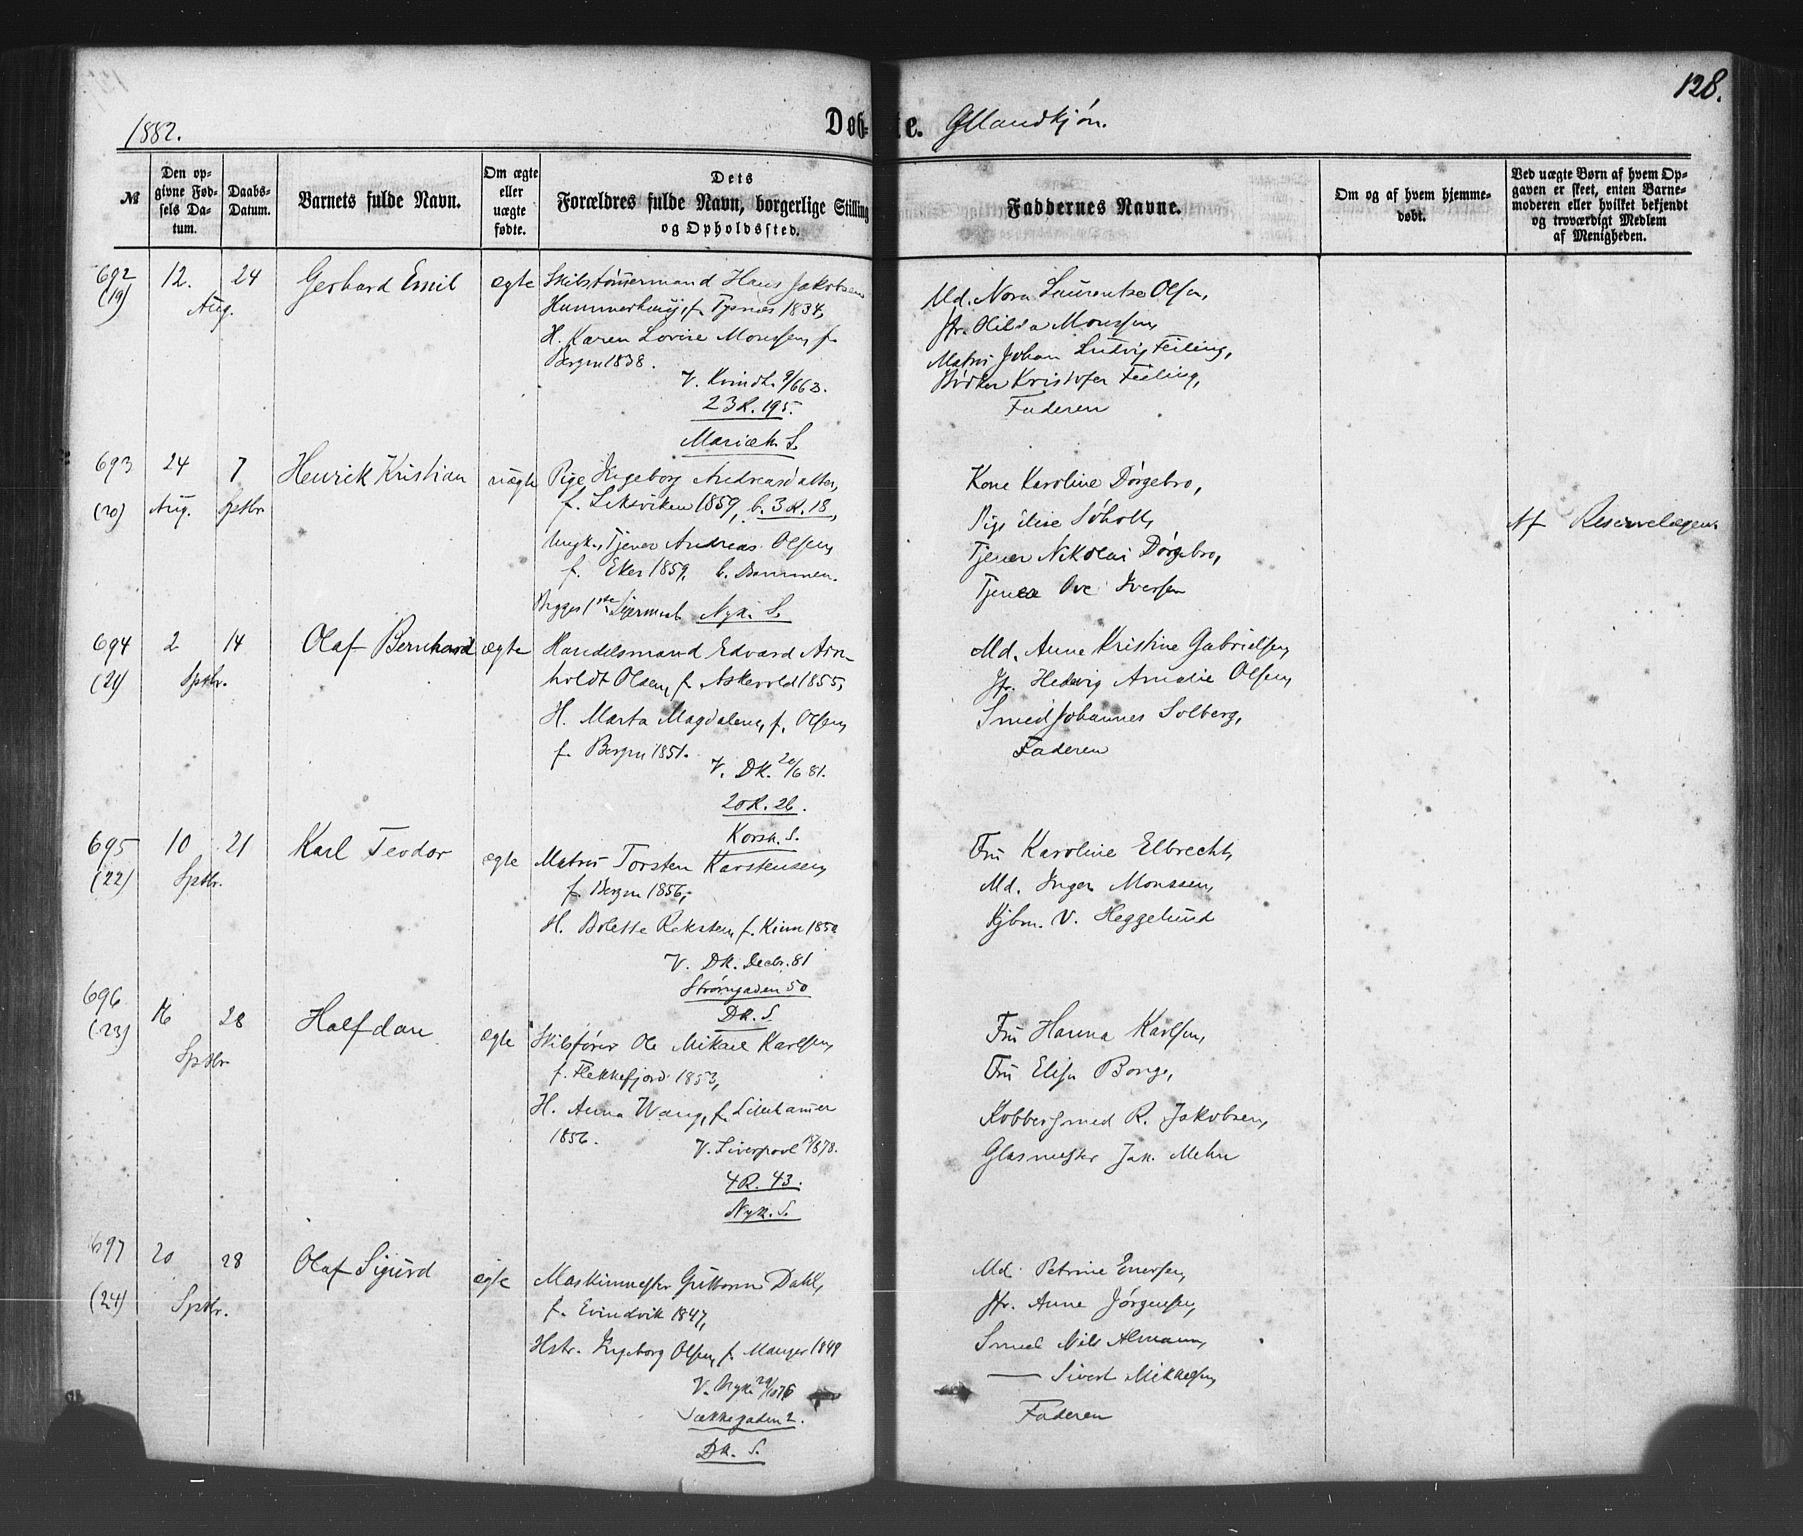 128.
1882.
Døb-te. Mandkjøn.
№
Den op-
givne Fød-
sels Da-
tum.
Daabs-
Datum.
Barnets fulde Navn.
Om ægte
eller
uægte
fødte.
Dets
Forældres fulde Navn, borgerlige Stilling
og Opholdssted.
Faddernes Navne.
Om og af hvem hjemme-
døbt.
Ved uægte Børn af hvem Op-
gaven er skeet, enten Barne-
moderen eller hvilket bekjendt
og troværdigt Medlem
af Menigheden.
692 12. 24 Gerhard Emil ægte Skibstømmermand Hans Jakobsen
(19) Aug. f. Tysnæs 1834,
H. Karen Lovise Monssen, f.
Bergen 1838.
23 R. 195.
Mariæk. S.
Md. Nora Laurentze Olsen,
Jfr. Hilda Monssen,
Matros Johan Ludvig Feiling,
Bødker Kristofer Feiling,
Faderen
693 24 7 Henrik Kristian uægte Pige Ingeborg Andreasdatter,
(20) Aug. Sptbr. f. Leksviken 1859, b. 3 R. 18,
Ungk., Tjener Andreas Olsen,
f. Eker 1859, b. Drammen.
Begges 1ste Leiermaal Nyk. S.
Kone Karoline Dørgebro,
Pige Elise Søholt,
Tjener Nikolai Dørgebro,
Tjener Ove Iversen
Af Reservelægen.
694 2 14 Olaf Bernhard ægte Handelsmand Edvard Arn-
(21) Sptbr. holdt Olsen, f. Askevold 1855,
H. Marta Magdalena, f. Olsen,
f. Bergen 1851.
V. DK. 20/6 81.
20 R. 26.
Korsk. S.
Md. Anne Kristine Gabrielsen,
Jfr. Hedvig Amalie Olsen,
Smed Johannes Solberg,
Faderen
695 10 21 Karl Teodor ægte Matros Torsten Karstensen,
(22) Sptbr. f. Bergen 1856,
H. Bolette Reksten, f. Kinn 1850
V. DK. Decbr. 81
Strømgaden 50
DK. S.
Fru Karoline Elbrecht,
Md. Inger Monssen,
Kjbm. V. Heggelund
696 16 28 Halfdan ægte Skibsfører Ole Mikael Karlsen,
(23) Sptbr. f. Flekkefjord 1853,
H. Anna Wang, f. Lillehamer
1856.
V. Liverpool
4 R. 43.
Nyk. S.
Fru Hanna Karlsen,
Fru Elisa Bonge,
Kobbersmed R. Jakobsen,
Glasmester Jak. Mehn
697 20 28 Olaf Sigurd ægte Maskinmester Guttorm Dahl,
(24) Sptbr. f. Evindvik 1847,
Hstr. Ingeborg Olsen, f. Manger 1849
V. Nyk.
Sækkegaden 2.
DK. S.
Md. Petrine Enersen,
Jfr. Anne Jørgensen,
Smed Nils Almann,
— Sivert Mikkelsen,
Faderen